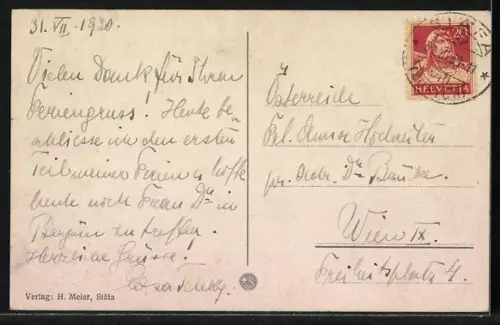 31. VII. 1930.
Vielen Dank für Ihren
Feriengruss! Heute be-
schliesse ich den ersten
Teil meiner Ferien u. hoffe
heute noch Frau Dr. in
Bergün zu treffen.
Herzliche Grüsse!
Verlag: H. Meier, Stäfa
20
HELVETIA
Österreich
Frl. Anna
pr. Adr. Dr.
Wien IX.
Freiheitsplatz 4.